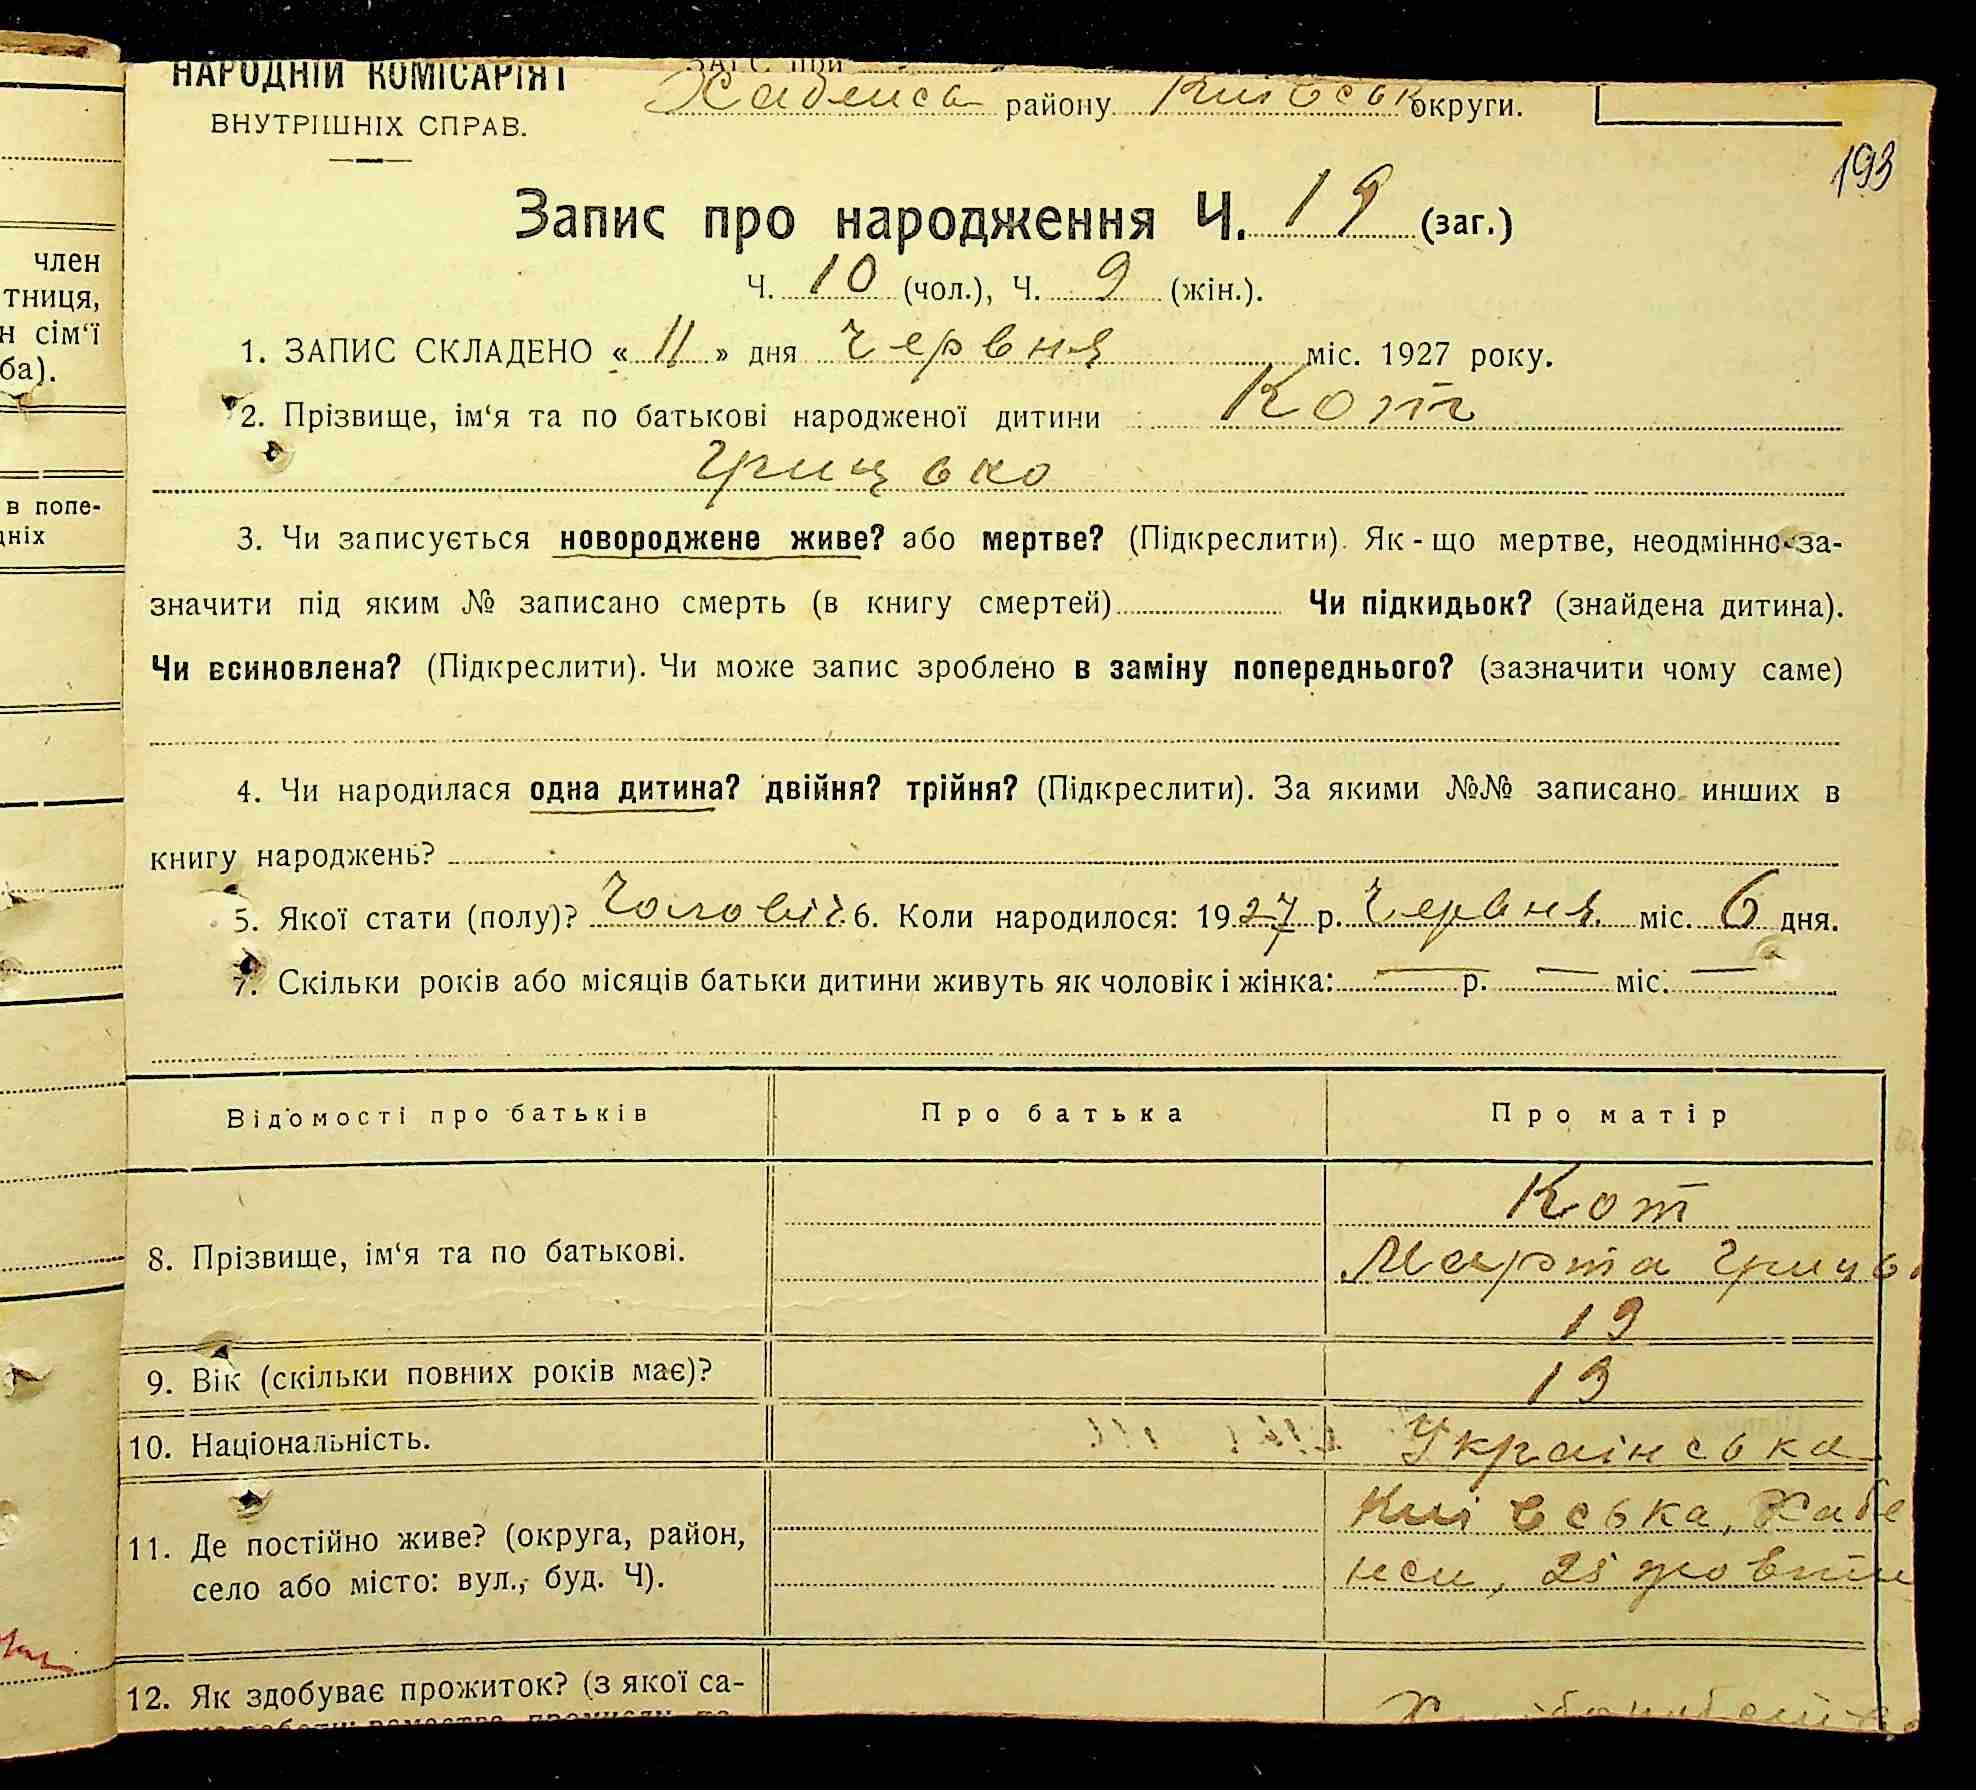 член
тниця,
н сім‘ї
ба).
в попе-
дніх
НАРОДНІЙ КОМІСАРІЯТ
ВНУТРІШНІХ СПРАВ.
ЗАГС при
Хабенсь району Київськ округи.
193
Запис про народження Ч. 19 (заг.)
Ч. 10 (чол.), Ч. 9 (жін.).
1. ЗАПИС СКЛАДЕНО « 11 » дня Червня міс. 1927 року.
2. Прізвище, ім‘я та по батькові народженої дитини Кот
Грицько
3. Чи записується новороджене живе? або мертве? (Підкреслити). Як-що мертве, неодмінно за-
значити під яким № записано смерть (в книгу смертей) Чи підкидьок? (знайдена дитина).
Чи всиновлена? (Підкреслити). Чи може запис зроблено в заміну попереднього? (зазначити чому саме)
4. Чи народилася одна дитина? двійня? трійня? (Підкреслити). За якими №№ записано инших в
книгу народжень?
5. Якої стати (полу)? Чоловіч. 6. Коли народилося: 1927 р. Червня міс. 6 дня.
7. Скільки років або місяців батьки дитини живуть як чоловік і жінка: — р. — міс. —
Відомості про батьків Про батька Про матір
Кот
8. Прізвище, ім‘я та по батькові. Марта Грицьк
19
9. Вік (скільки повних років має)? 19
10. Національність. Українська
Київська, Хабе
11. Де постійно живе? (округа, район,
село або місто: вул., буд. Ч). нськ, 25 жовтн
12. Як здобуває прожиток? (з якої са-